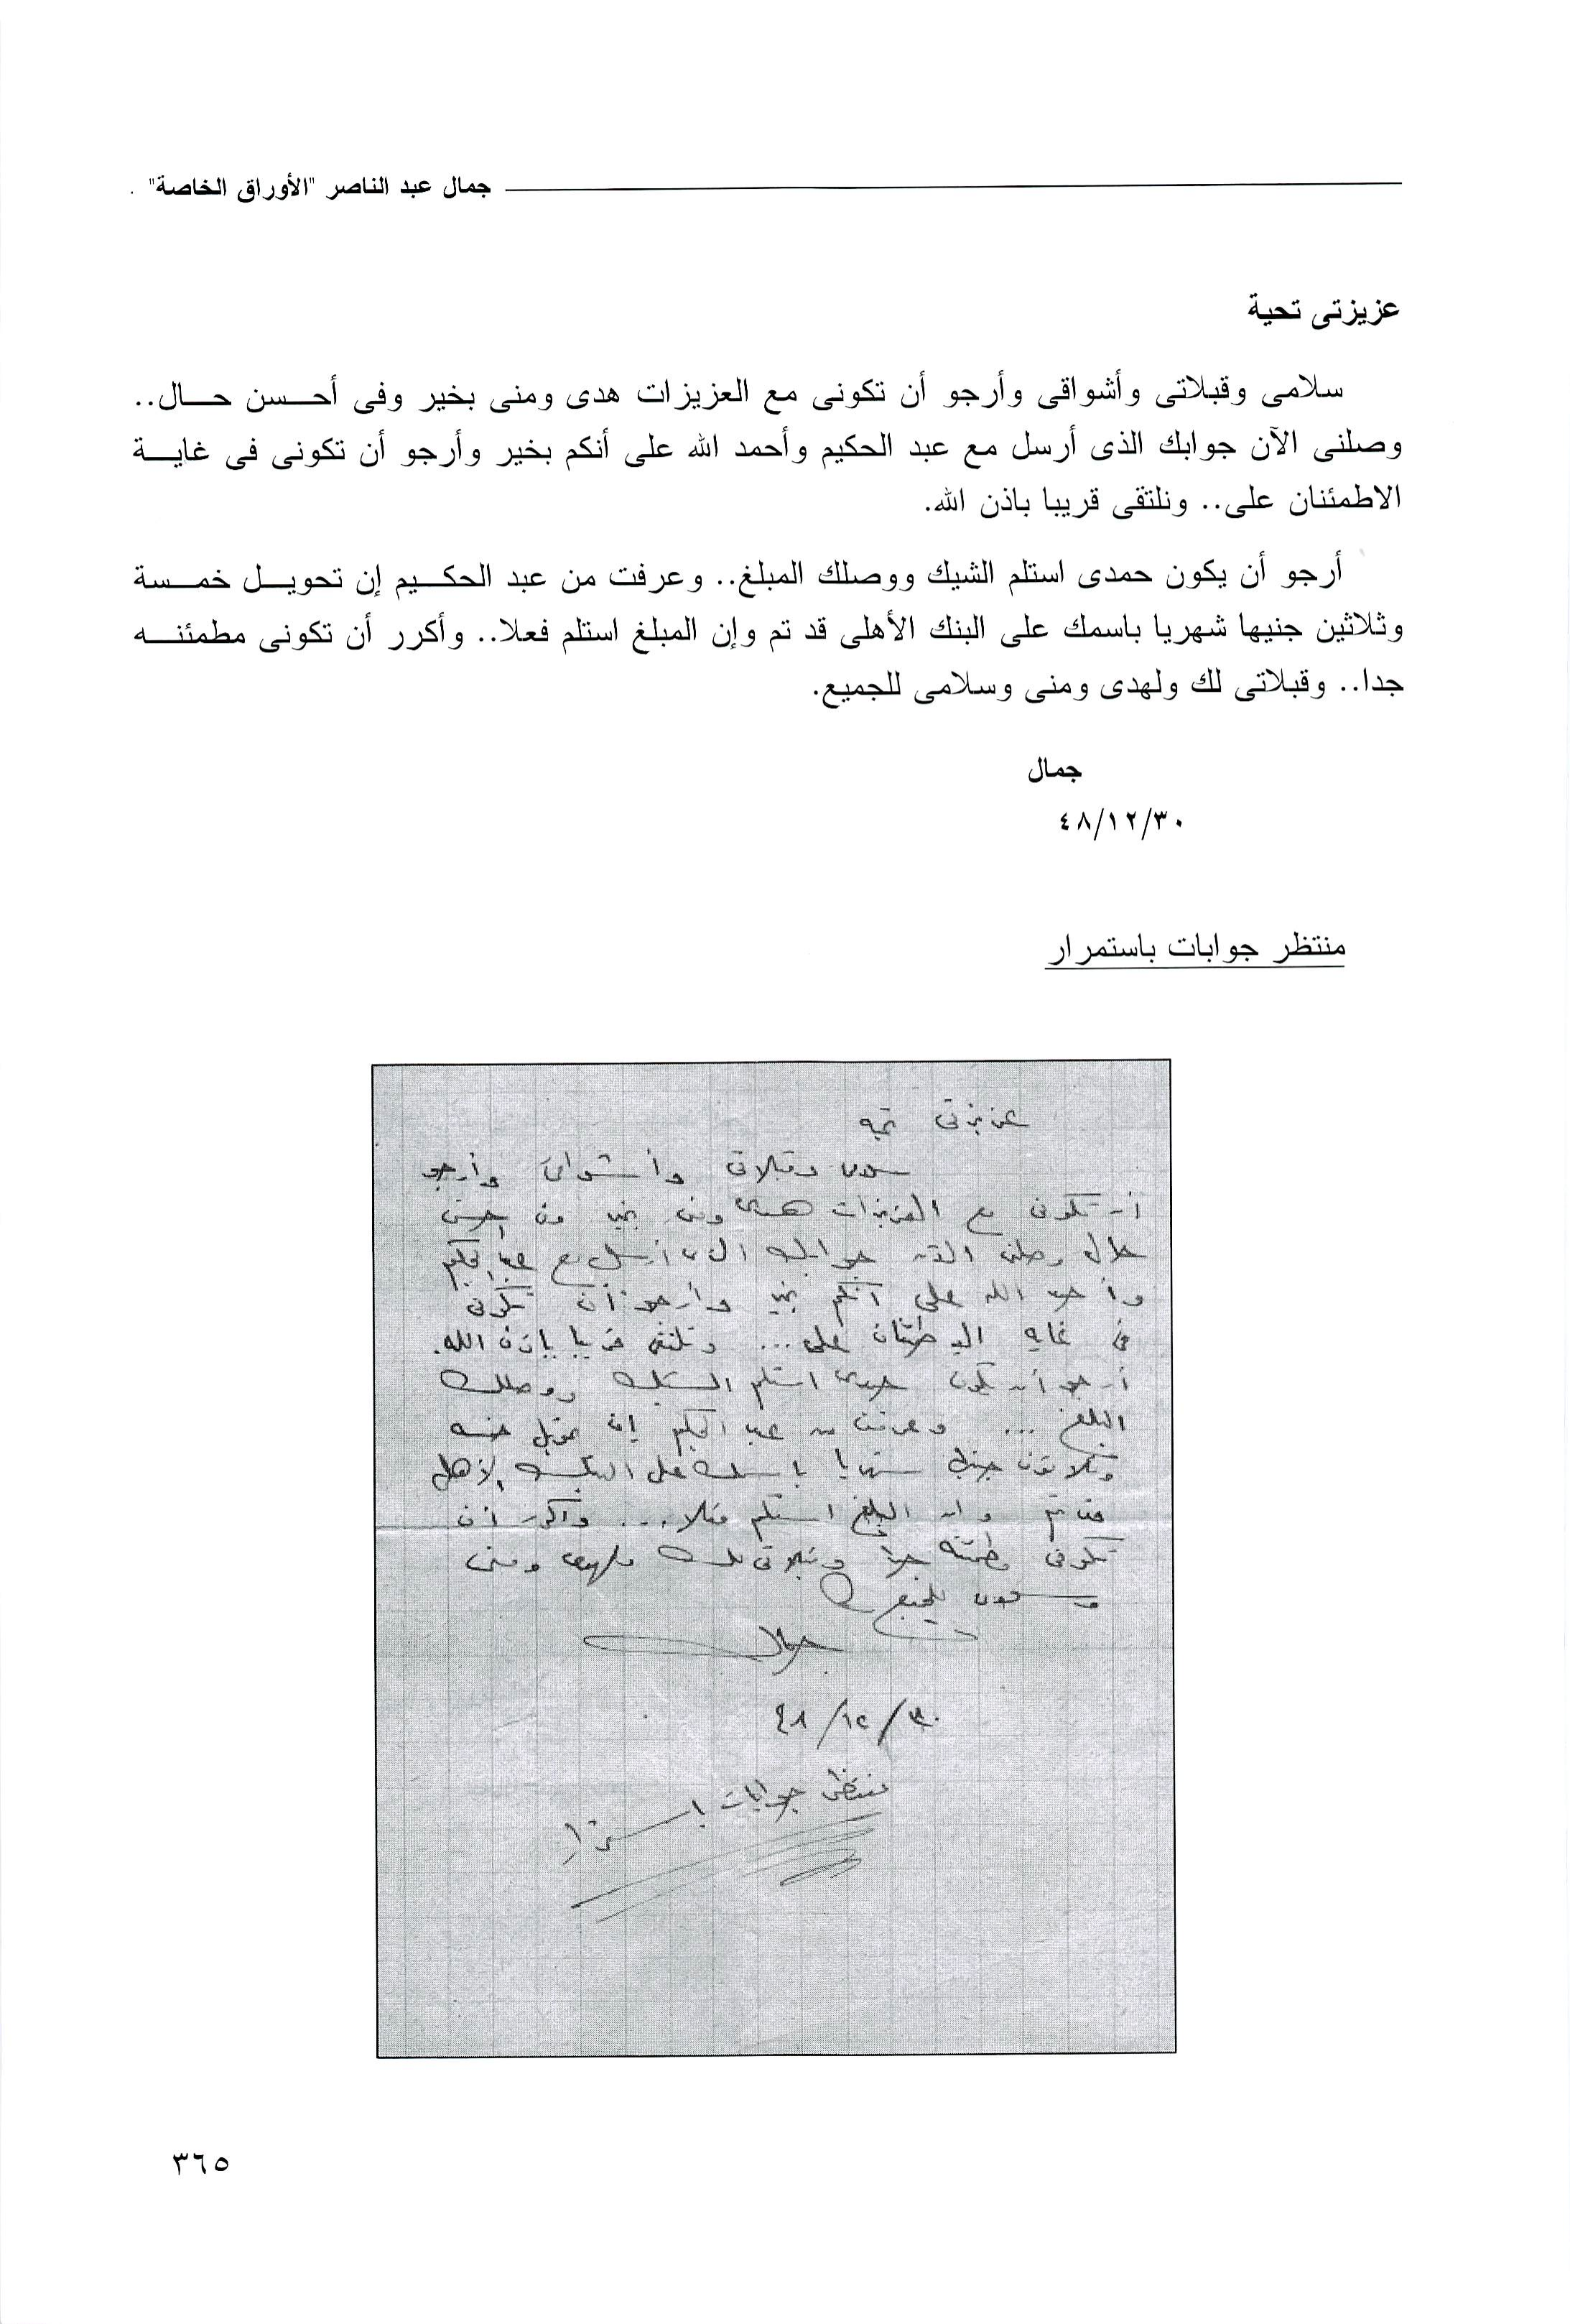 جمال عبد الناصر "الأوراق الخاصة"
عزيزتى تحية
سلامى وقبلاتى وأشواقى وأرجو أن تكونى مع العزيزات هدى ومنى بخير وفى أحسن حال..
وصلنى الآن جوابك الذى أرسل مع عبد الحكيم وأحمد الله على أنكم بخير وأرجو أن تكونى فى غاية
الاطمئنان على.. ونلتقى قريبا باذن الله.
أرجو أن يكون حمدى استلم الشيك ووصلك المبلغ.. وعرفت من عبد الحكيم إن تحويل خمسة
وثلاثين جنيها شهريا باسمك على البنك الأهلى قد تم وإن المبلغ استلم فعلا.. وأكرر أن تكونى مطمئنه
جدا.. وقبلاتى لك ولهدى ومنى وسلامى للجميع.
جمال
٤٨/١٢/٣٠
منتظر جوابات باستمرار
عزيزتى تحيه
سلامى وقبلاتى وأشواقى وأرجو
أن تكونى مع العزيزات هدى ومنى بخير وفى أحسن
حال وصلنى الآن جوابك الذى أرسل مع عبد الحكيم
وأحمد الله على أنكم بخير وأرجو أن تكونى
فى غايه الاطمئنان على ... ونلتقى قريبا باذن الله.
أرجو أن يكون حمدى استلم الشيك ووصلك
المبلغ ... وعرفت من عبد الحكيم إن تحويل خمسه
وثلاثون جنيها شهريا باسمك على البنك الأهلى
قد تم وان المبلغ استلم فعلا ... وأكرر أن
تكونى مطمئنه جدا وقبلاتى لك ولهدى ومنى
وسلامى للجميع
جمال
٤٨/١٢/٣٠
منتظر جوابات باستمرار
٣٦٥